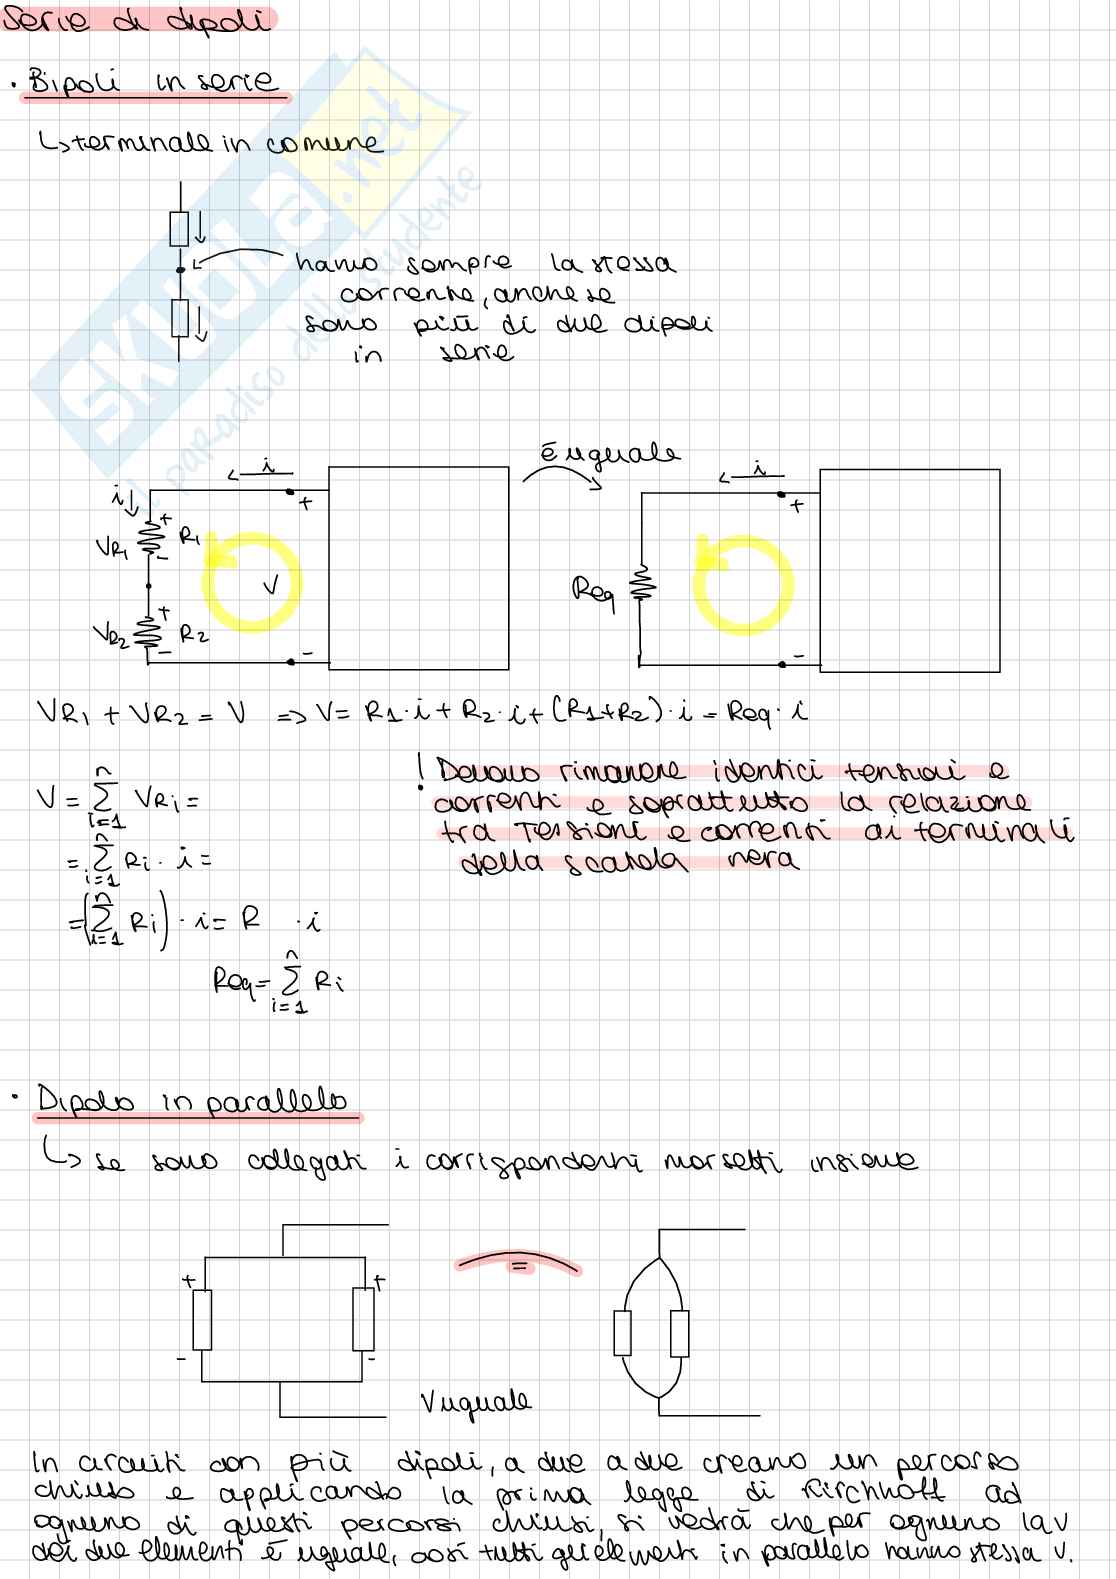 Serie di dipoli
· Bipoli in serie
↳ terminale in comune
hanno sempre la stessa
corrente, anche se
sono più di due dipoli
in serie
è uguale
i
i
i
+
+
VR1
+
-
R1
V
Req
VR2
+
-
R2
-
-
VR1 + VR2 = V => V = R1·i + R2·i + (R1+R2)·i = Req·i
V = n∑i=1 VRi =
= n∑i=1 Ri · i =
= (n∑i=1 Ri) · i = R · i
Req = n∑i=1 Ri
! Devono rimanere identici tensioni e
correnti e soprattutto la relazione
tra Tensioni e correnti ai terminali
della scatola nera
· Dipolo in parallelo
↳ se sono collegati i corrispondenti morsetti insieme
+
+
=
-
-
V uguale
In circuiti con più dipoli, a due a due creano un percorso
chiuso e applicando la prima legge di Kirchhoff ad
ognuno di questi percorsi chiusi, si vedrà che per ognuno la v
dei due elementi è uguale, così tutti gli elementi in parallelo hanno stessa v.
SKUOLA.net
il paradiso dello studente